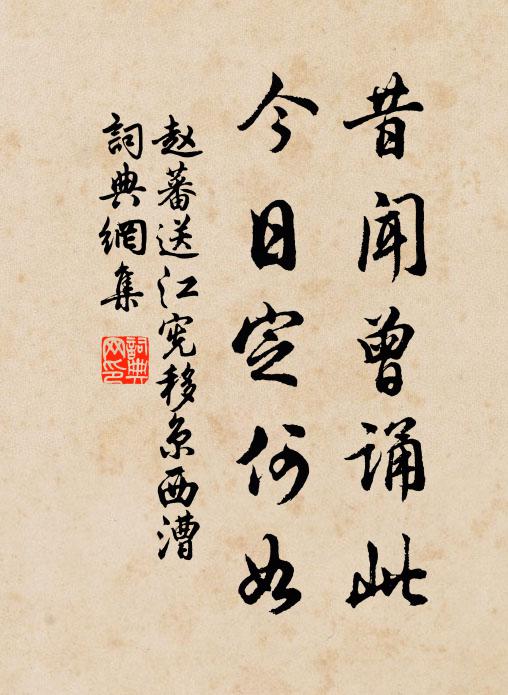 昔闻曾诵此
今日定何如
赵蕃送江宪移京西漕
詞典網集
詞典网印